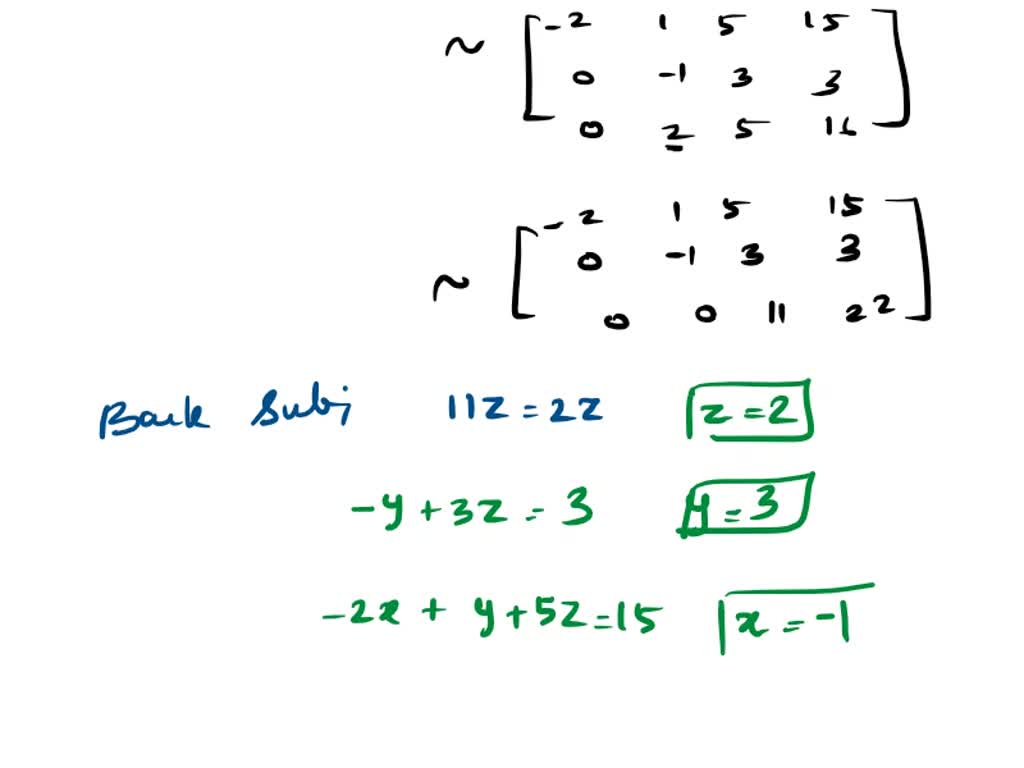 ~ -2 1 5 15
0 -1 3 3
0 2 5 16
~ -2 1 5 15
0 -1 3 3
0 0 11 22
Back Sub; 11z = 22 z = 2
-y + 3z = 3 y = 3
-2x + y + 5z = 15 x = -1